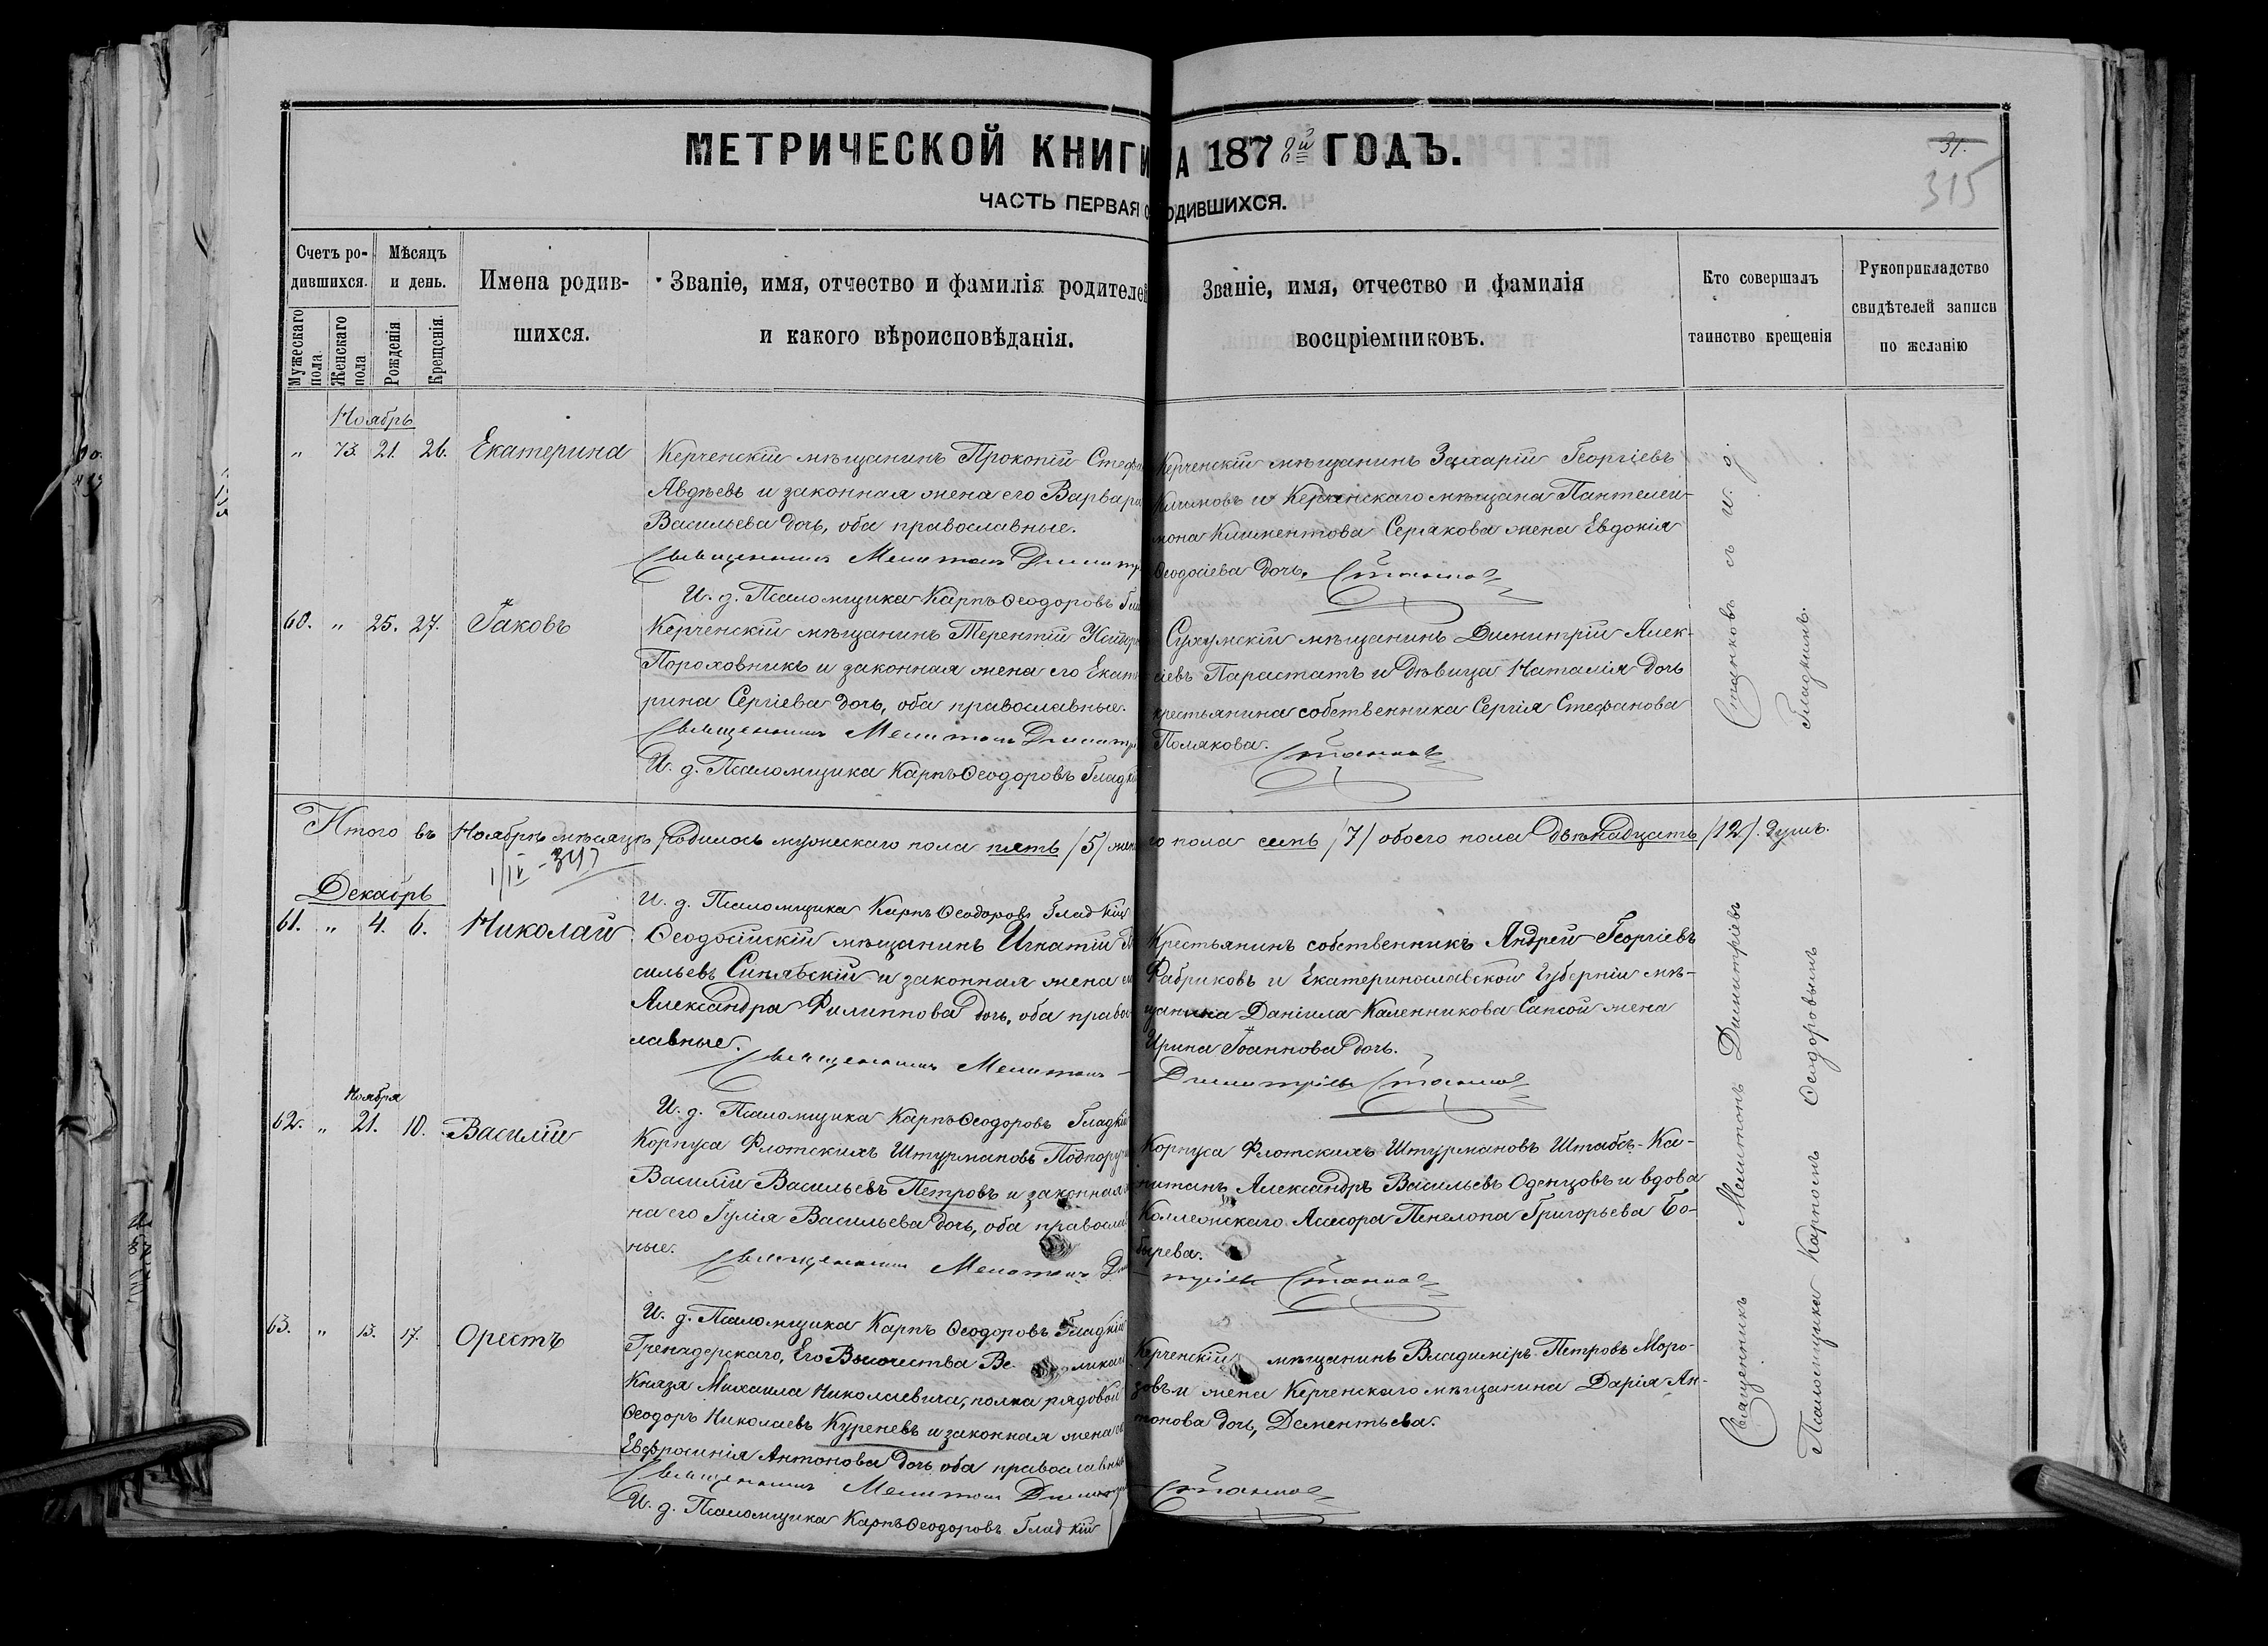 МЕТРИЧЕСКОЙ КНИГИ НА 1878й ГОДЪ.
ЧАСТЬ ПЕРВАЯ О РОДИВШИХСЯ.
31.
315
Счетъ ро-
дившихся.
Мужескаго пола.
Женскаго пола
Мѣсяцъ
и день.
Рожденія
Крещенія.
Имена родив-
шихся.
Званіе, имя, отчество и фамилія родителей
и какого вѣроисповѣданія.
Званіе, имя, отчество и фамилія
воспріемниковъ.
Кто совершалъ
таинство крещенія
Рукоприкладство
свидѣтелей записи
по желанію
Ноябрь
" 73. 21. 26. Екатерина
Керченскій мѣщанинъ Прокопій Стефа
Авдѣевъ и законная жена его Варвара
Васильева дочь, оба православные.
Священникъ Мелитонъ Димитр
И. д. Псаломщика Карпъ Ѳеодоровъ Гла
Керченскій мѣщанинъ Захарій Георгіевъ
и Керченскаго мѣщана Пантелей-
мона Климентова Серякова жена Евдокія
Ѳеодосіева дочь. Станковъ
60. " 25. 27. Іаковъ
Керченскій мѣщанинъ Терентій Исидоро
Пороховникъ и законная жена его Екате
рина Сергіева дочь, оба православные.
Священникъ Мелитонъ Димитр
И. д. Псаломщика Карпъ Ѳеодоровъ Гладкі
Сухумскій мѣщанинъ Димитрій Алек-
сіевъ Парастатъ и дѣвица Наталія дочь
крестьянина собственника Сергія Стефанова
Полякова. Станковъ
Станковъ съ и. д.
Гладкимъ.
Итого въ Ноябрѣ мѣсяцѣ родилось мужескаго пола пять /5/ женскаго пола семь /7/ обоего пола двѣнадцать /12/. душъ.
Декабрь
61. " 4. 6. Николай
И. д. Псаломщика Карпъ Ѳеодоровъ Гладкій
Ѳеодосійскій мѣщанинъ Игнатій Ва
сильевъ Синявскій и законная жена ег
Александра Филиппова дочь, оба право-
славные.
Священникъ Мелитонъ
Крестьянинъ собственникъ Андрей Георгіевъ
Фабриковъ и Екатеринославской Губерніи мѣ-
щанина Даніила Каленникова Сапсой жена
Ирина Іоаннова дочь.
Димитріевъ Станковъ
Ноября
62. " 21. 10. Василій
И. д. Псаломщика Карпъ Ѳеодоровъ Гладкій
Корпуса Флотскихъ Штурмановъ Подпоручи
Василій Васильевъ Петровъ и законная же
на его Іулія Васильева дочь, оба православ
ные.
Священникъ Мелитонъ Дими
Корпуса Флотскихъ Штурмановъ Штабсъ-Ка-
питанъ Александръ Васильевъ Оденцовъ и вдова
Коллежскаго Асесора Пенелопа Григорьева Бо-
бырева.
тріевъ Станковъ
63. " 13. 17. Орестъ
И. д. Псаломщика Карпъ Ѳеодоровъ Гладкій
Гренадерскаго, Его Высочества Ве ликаго
Князя Михаила Николаевича, полка рядовой
Ѳеодоръ Николаевъ Куреневъ и законная жена его
Евфросинія Антонова дочь оба православные
Священникъ Мелитонъ Димитрі
И. д. Псаломщика Карпъ Ѳеодоровъ Гладкій
Керченскій мѣщанинъ Владиміръ Петровъ Моро-
зовъ и жена Керченскаго мѣщанина Дарія Ан-
тонова дочь, Дементьева.
Станковъ
Священникъ Мелитонъ Димитріевъ
Псаломщика Карпомъ Ѳеодоровымъ